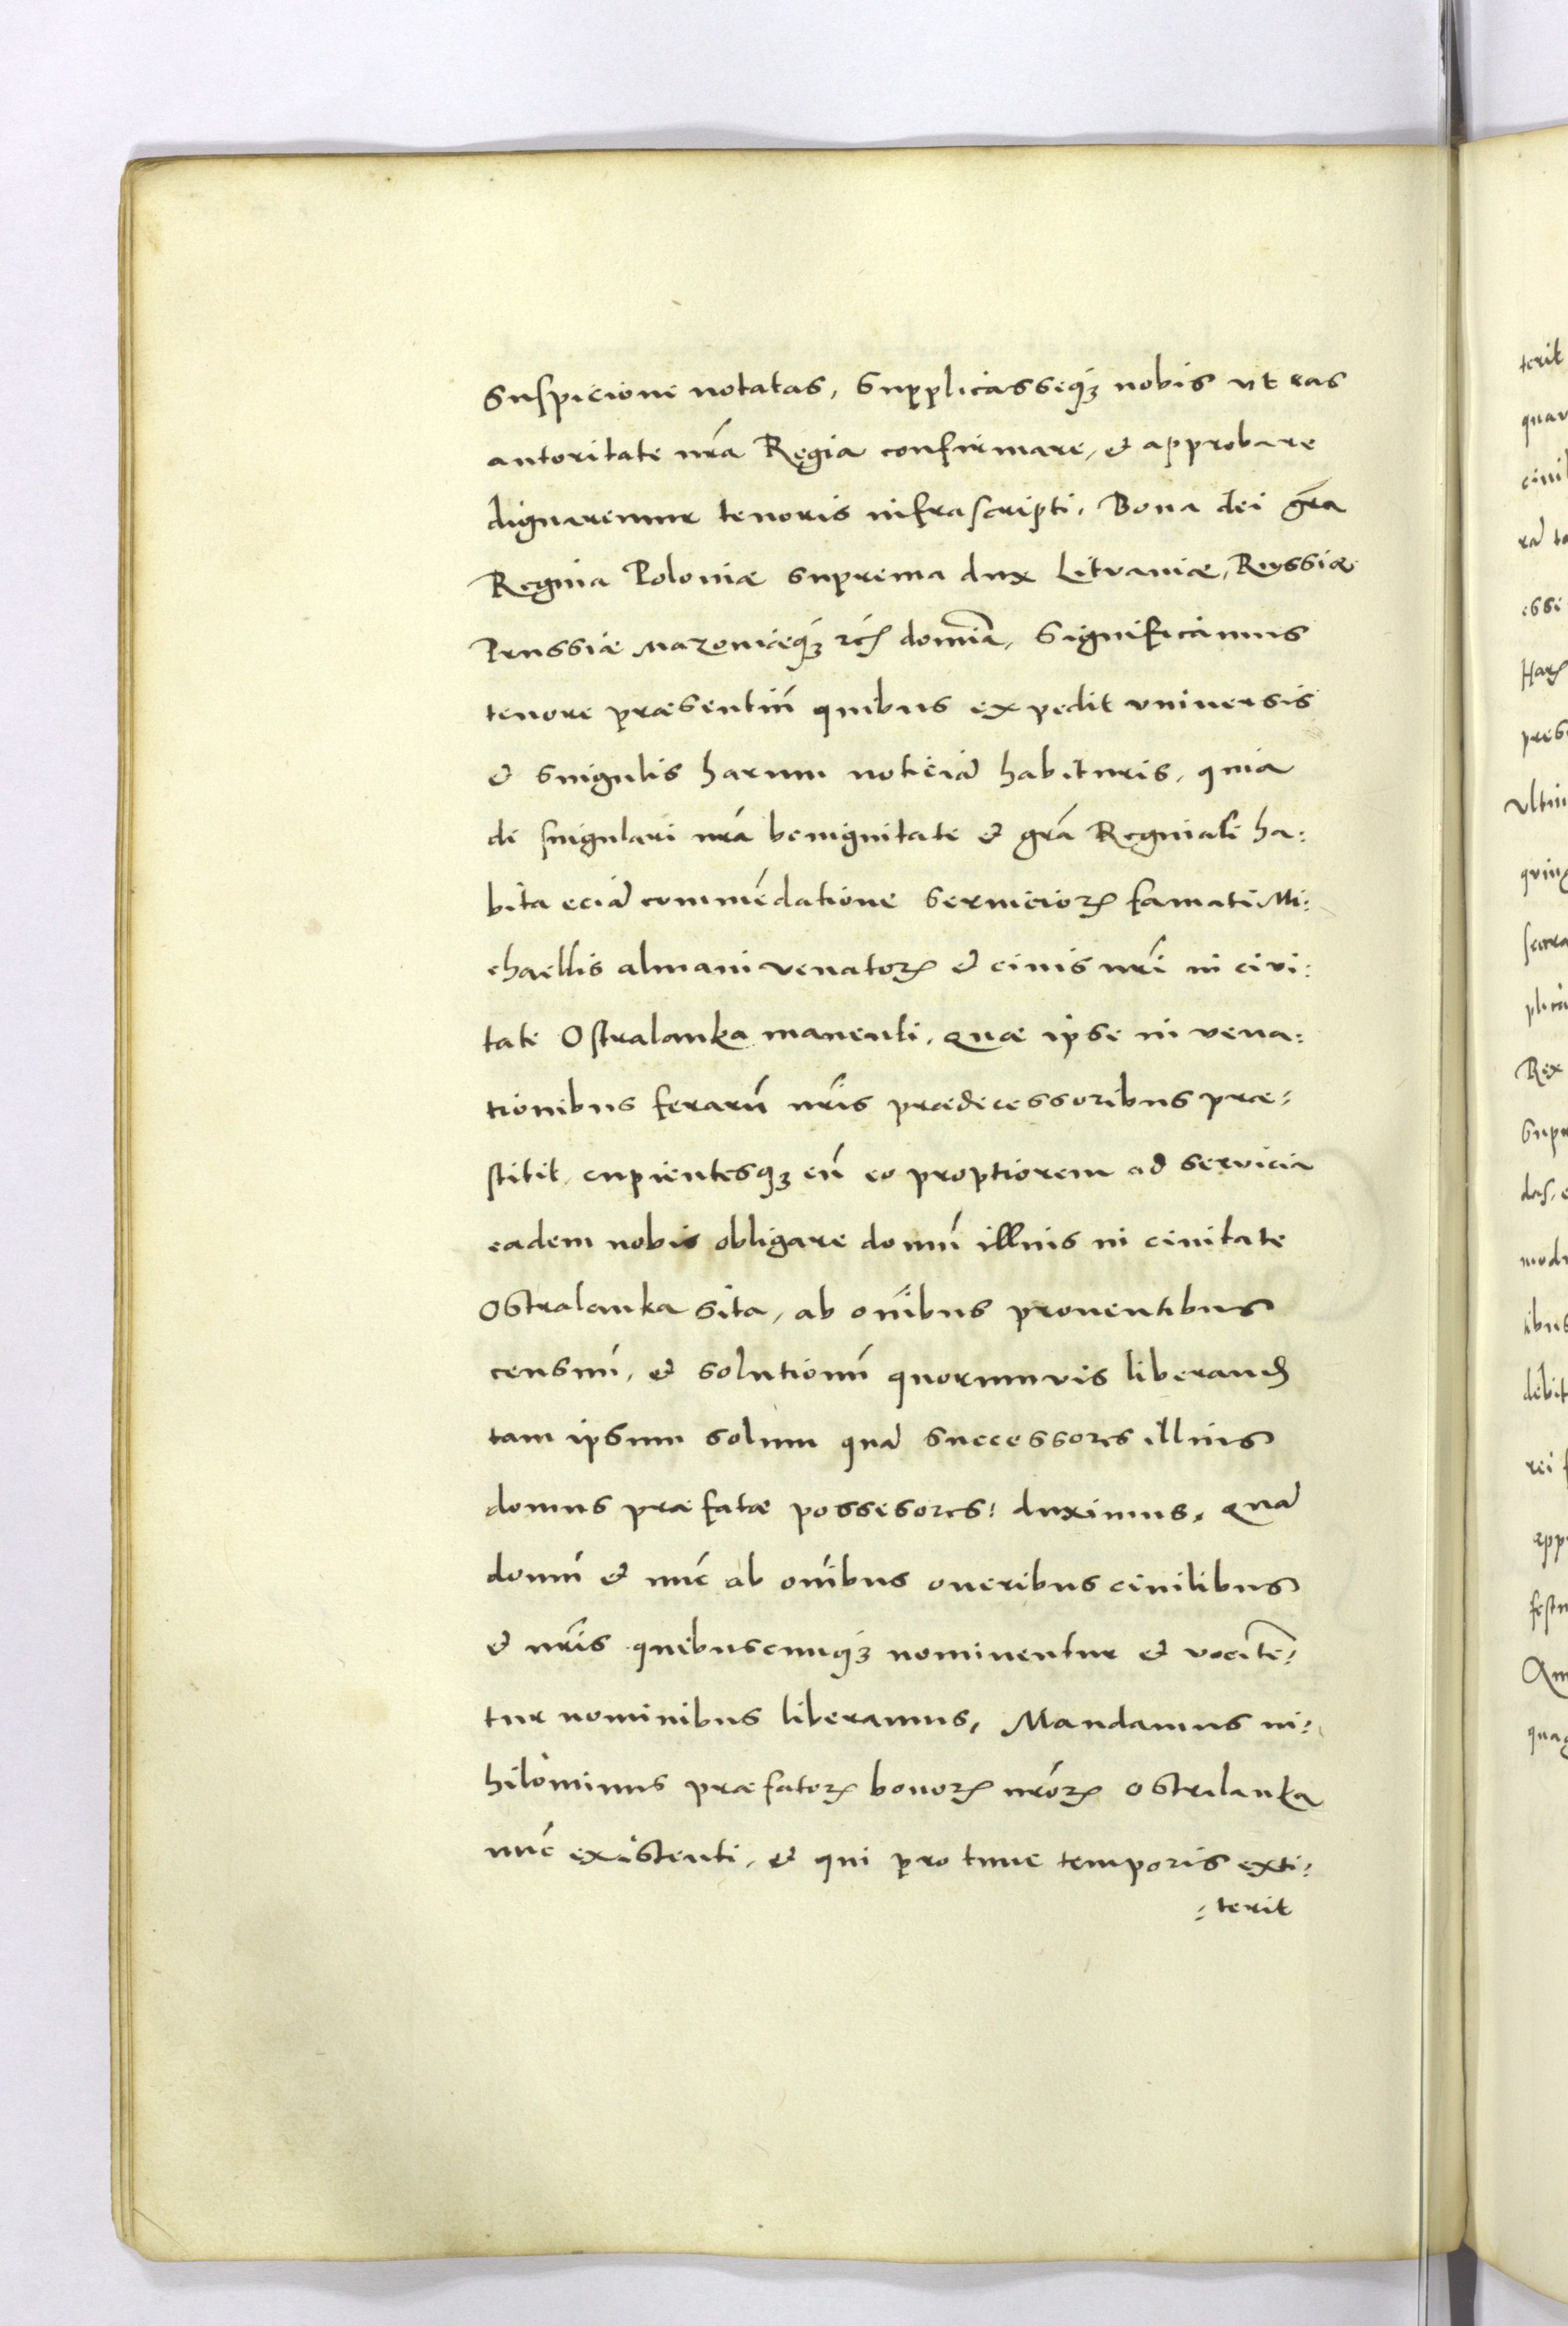 suspicione notatas, supplicasseq́ꝫ nobis ut eas
autoritate nr̃a Regia confirmare, et approbare
dignaremur tenoris infrascripti. Bona dei gr̃a
Regina Poloniæ suprema dux Litvaniæ, Russiæ
Prussiæ Mazoviæq́ꝫ ꝛc̃ domĩa, Significamus
tenore præsentiũ quibus expedit universis
et singulis harum noticiã habituris, quia
de singulari nr̃a benignitate et gr̃a Reginali ha:
bita eciã commẽdatione serviciorꝝ famati Mi:
chaellis almani venatorꝝ et civis nr̃i in civi:
tate Ostralanka manenti, quæ ipse in vena:
tionibus ferarũ nr̃is prædecessoribus præ:
stitit, cupientesq́ꝫ eũ eo proptiorem ad servicia
eadem nobis obligare domũ illius in civitate
Ostralanka sita, ab om̃ibus proventibus
censuũ, et solutionũ quorumvis liberand̃
tam ipsum solum quã successores illius
domus præfatæ possesores: duximus, quã
domũ et nũc ab om̃ibus oneribus civilibus
et nr̃is quibuscumq́ꝫ nominentur et vocitẽ:
tur nominibus liberamus, Mandamus ni:
hilominus præfatorꝝ bonorꝝ nr̃orꝝ Ostrilanka
nũc existenti, et qui pro tunc temporis exti:
:terit
terit